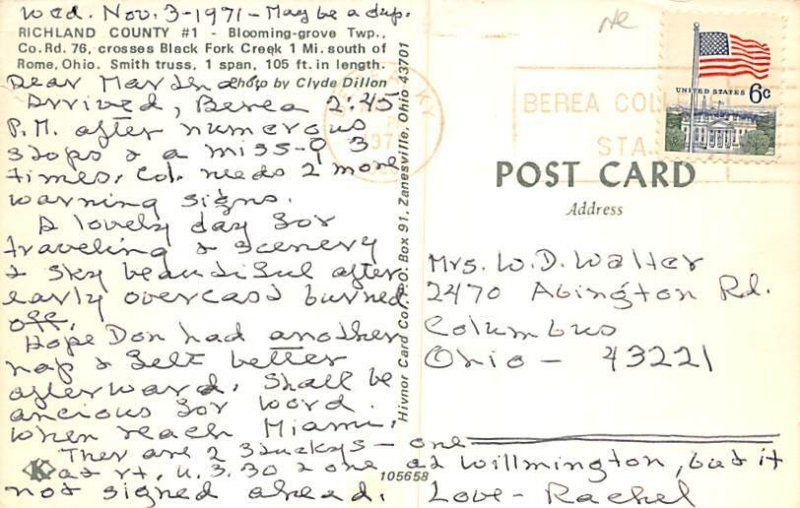 Wed. Nov. 3-1971 - May be a dup.
RICHLAND COUNTY #1 - Blooming-grove Twp.,
Co.Rd. 76, crosses Black Fork Creek 1 Mi. south of
Rome, Ohio. Smith truss, 1 span, 105 ft. in length.
Photo by Clyde Dillon
Dear Martha
Arrived, Berea 2:45
P.M. after numerous
stops & a miss-q 3
times. Col. needs 2 more
warning signs.
A lovely day for
traveling & scenery
& sky beautiful after
early overcast burned
off.
Hope Don had another
nap & felt better
afterward. Shall be
ancious for word.
When reach Miami.
Ther are 2 Stuckys - one
at rt. U.S. 30 & one at Willmington, but it
not signed ahead.
Love - Rachel
K
105658
Hivnor Card Co., P.O. Box 91, Zanesville, Ohio 43701
Ne
BEREA COL
STA.
UNITED STATES 6c
POST CARD
Address
Mrs. W. D. Walter
2470 Abington Rd.
Columbus
Ohio - 43221